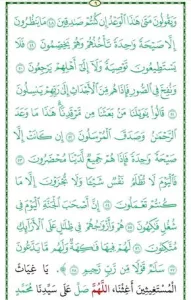 وَيَقُولُونَ مَتَىٰ هَٰذَا الْوَعْدُ إِن كُنتُمْ صَٰدِقِينَ ۝ مَا يَنظُرُونَ
إِلَّا صَيْحَةً وَٰحِدَةً تَأْخُذُهُمْ وَهُمْ يَخِصِّمُونَ ۝ فَلَا
يَسْتَطِيعُونَ تَوْصِيَةً وَلَآ إِلَىٰٓ أَهْلِهِمْ يَرْجِعُونَ ۝
وَنُفِخَ فِي الصُّورِ فَإِذَا هُم مِّنَ الْأَجْدَاثِ إِلَىٰ رَبِّهِمْ يَنسِلُونَ
۝ قَالُوا يَٰوَيْلَنَا مَن بَعَثَنَا مِن مَّرْقَدِنَا هَٰذَا مَا وَعَدَ
الرَّحْمَٰنُ وَصَدَقَ الْمُرْسَلُونَ ۝ إِن كَانَتْ إِلَّا
صَيْحَةً وَٰحِدَةً فَإِذَا هُمْ جَمِيعٌ لَّدَيْنَا مُحْضَرُونَ ۝
فَالْيَوْمَ لَا تُظْلَمُ نَفْسٌ شَيْئًا وَلَا تُجْزَوْنَ إِلَّا مَا
كُنتُمْ تَعْمَلُونَ ۝ إِنَّ أَصْحَٰبَ الْجَنَّةِ الْيَوْمَ فِي
شُغُلٍ فَٰكِهُونَ ۝ هُمْ وَأَزْوَٰجُهُمْ فِي ظِلَٰلٍ عَلَى الْأَرَآئِكِ
مُتَّكِئُونَ ۝ لَهُمْ فِيهَا فَٰكِهَةٌ وَلَهُم مَّا يَدَّعُونَ
۝ سَلَٰمٌ قَوْلًا مِّن رَّبٍّ رَّحِيمٍ ۝. يَا غِيَاثَ
الْمُسْتَغِيثِينَ أَغِثْنَا، اللَّهُمَّ صَلِّ عَلَى سَيِّدِنَا مُحَمَّدٍ